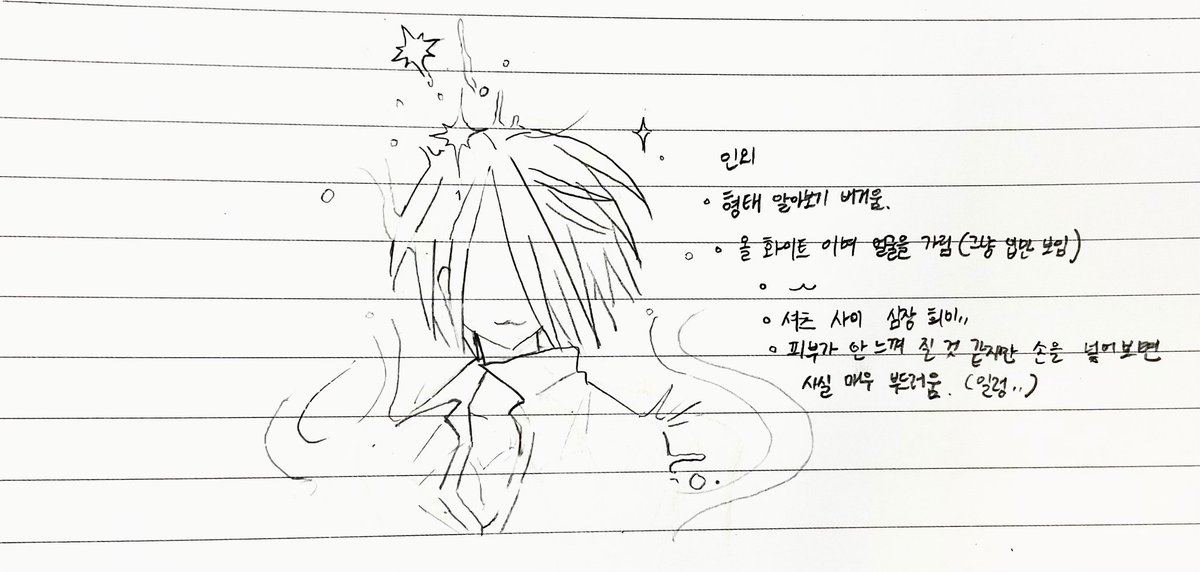 인외
• 형태 알아보기 버거움.
• 올 화이트 이며 얼굴을 가림 (그냥 입만 보임)
•
• 셔츠 사이 심장
• 피부가 안 느껴 질 것 같지만 손을 넣어보면
사실 매우 부드러움. (일렁..)